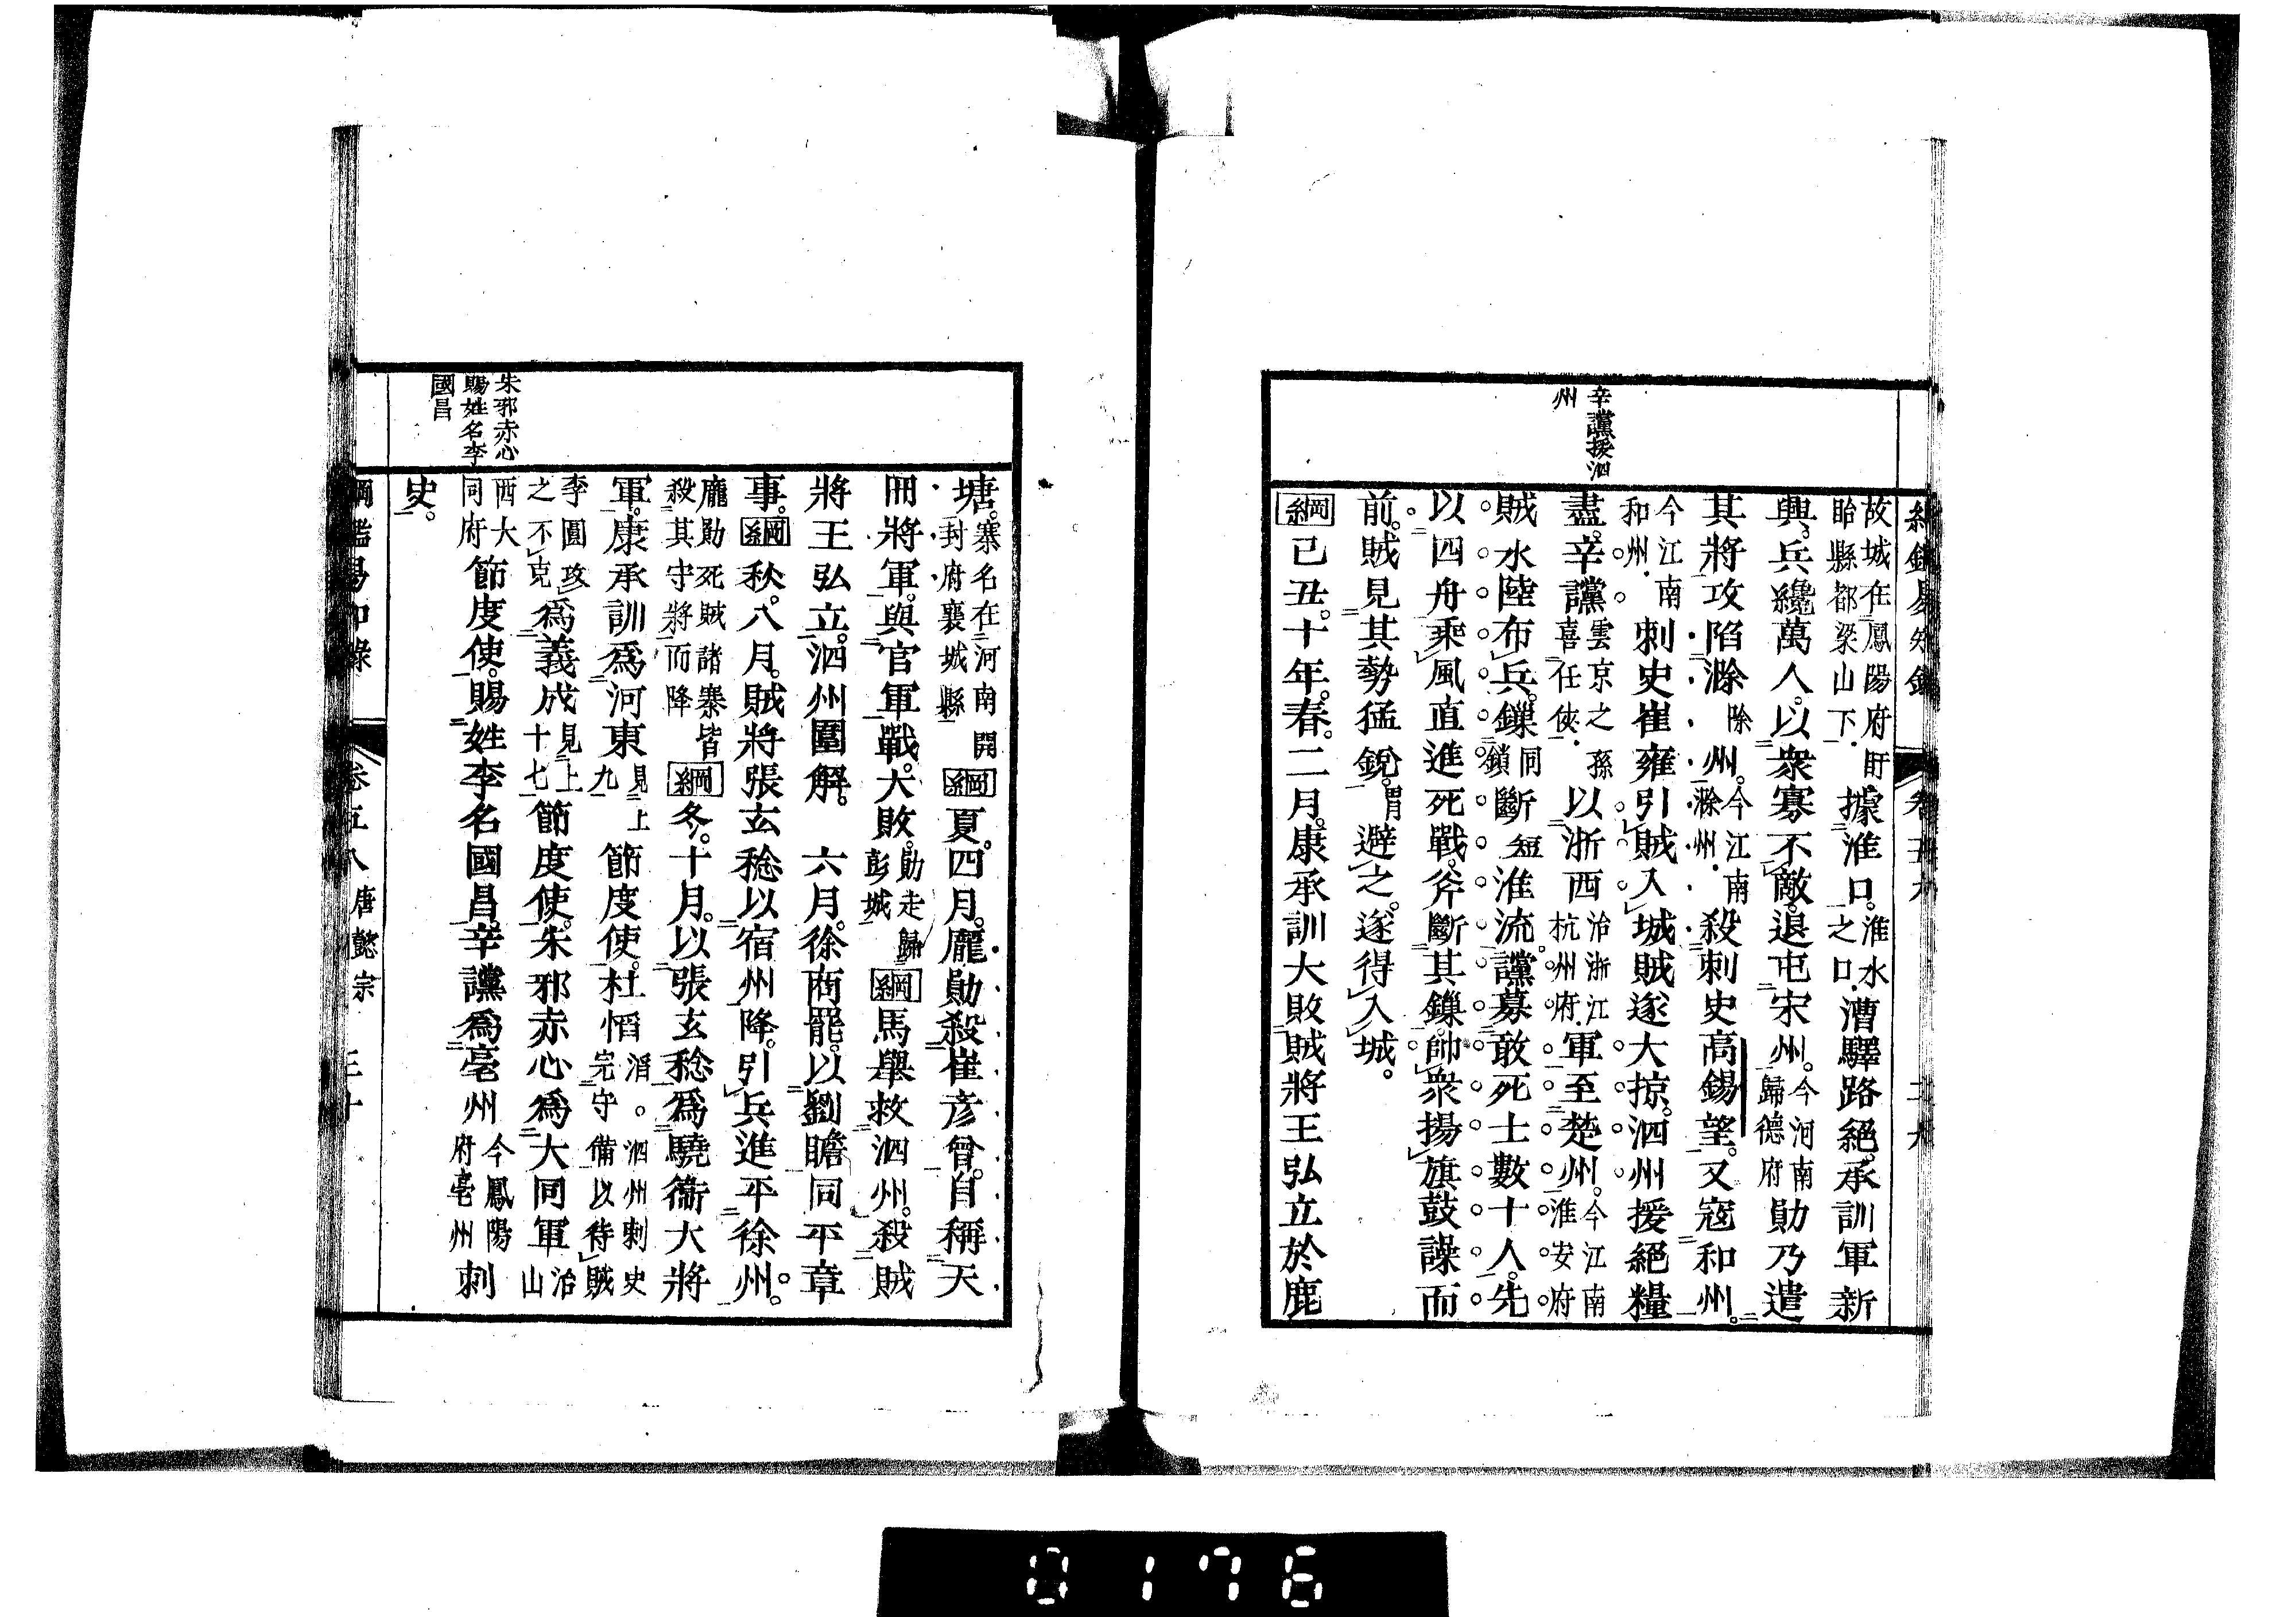 辛讜援泗
州
故城在鳳陽府盱
眙縣都梁山下
據淮口。淮水
之口漕驛路絕。承訓軍新
興。兵纔萬人。以衆寡不敵。退屯宋州。今河南
歸德府勛乃遣
其將攻陷滁除州。今江南
滁州殺刺史高錫望。又寇和州。
今江南
和州刺史崔雍引賊入城賊遂大掠。泗州援絕糧
盡。辛讜雲京之孫
喜任俠以浙西治浙江
杭州府軍至楚州。今江南
淮安府
賊水陸布兵。鏁同
鎖斷短淮流。讜募敢死士數十人。先
以四舟乘風直進死戰。斧斷其鏁。帥衆揚旗鼓譟而
前。賊見其勢猛銳。胃避之。遂得入城。
綱己丑。十年。春。二月。康承訓大敗賊將王弘立於鹿
塘。寨名在河南開
封府襄城縣綱夏。四月。龐勛殺崔彥曾。自稱天
冊將軍。與官軍戰。大敗。勛走歸
彭城綱馬舉救泗州。殺賊
將王弘立。泗州圍解。 六月。徐商罷。以劉瞻同平章
事。綱秋。八月。賊將張玄稔以宿州降。引兵進平徐州。
龐勛死賊諸寨皆
殺其守將而降綱冬。十月。以張玄稔爲驍衞大將
軍。康承訓爲河東見上
九節度使。杜慆滔。泗州刺史
完守備以待賊
李圓攻
之不克爲義成見上
十七節度使。朱邪赤心爲大同軍治
山
西大
同府節度使。賜姓李名國昌。辛讜爲亳州今鳳陽
府亳州刺
史。
朱邪赤心
賜姓名李
國昌
綱鑑易知錄 卷五八 唐懿宗 三十
0176